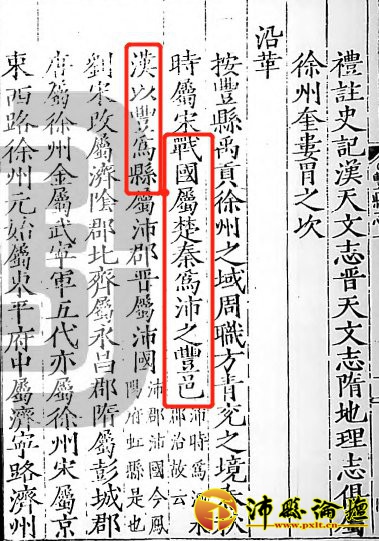 禮註史記漢天文志晉天文志隋地理志俱屬
徐州奎婁胃之次
沿革
按豐縣禹貢徐州之域周職方青兗之境春秋
時屬宋戰國屬楚秦爲沛之豐邑沛時爲水郡治故云
漢以豐爲縣屬沛郡晉屬沛國沛郡沛國今鳳陽府虹縣是也
劉宋改屬濟陰郡北齊屬永昌郡隋屬彭城郡
唐屬徐州金屬武寧軍五代亦屬徐州宋屬京
東西路徐州元始屬東平府中屬濟寧路濟州
沛縣論壇
www.pxlt.cn